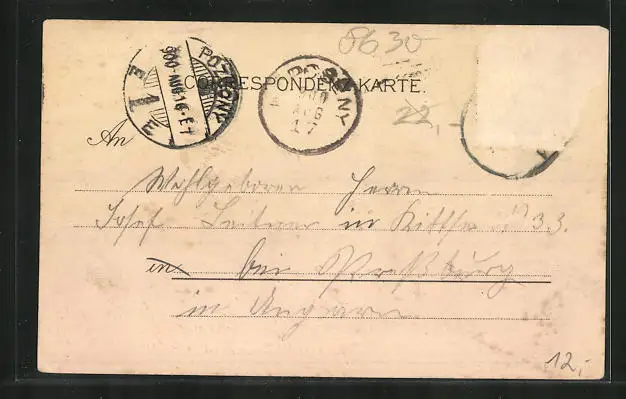 8630
POZSONY
900 AUG 16 E 7
E 1 E
POZSONY
900
AUG
17
CORRESPONDENZ-KARTE.
22,-
An
Wohlgeboren Herrn
Josef Leitner in Kittsee 33
in bei Preßburg
in Ungarn
12,-